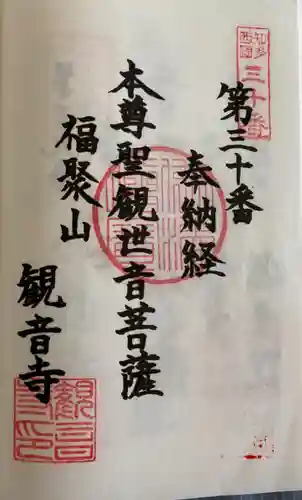 知多
西国
三十番
第三十番
奉納経
本尊聖観世音菩薩
福聚山
観音寺